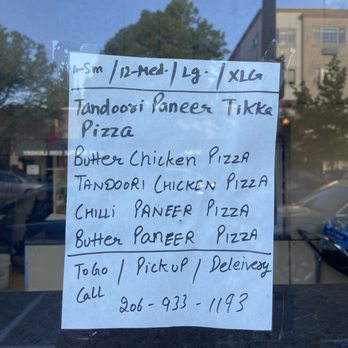 11-Sm / 12-Med. / Lg. / XLG
Tandoori Paneer Tikka
Pizza
Butter Chicken Pizza
TANDOORI CHICKEN PIZZA
CHILLI PANEER PIZZA
Butter PANEER PIZZA
TOGO / PICKUP / Deleivery
Call
206-933-1193